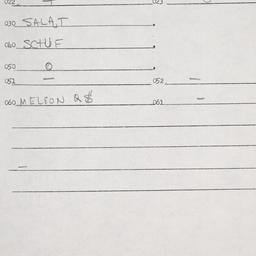 022 023
030 SALAT
040 SCHUF
050 0
051 — 052 —
060 MELFON Q$ 061 —